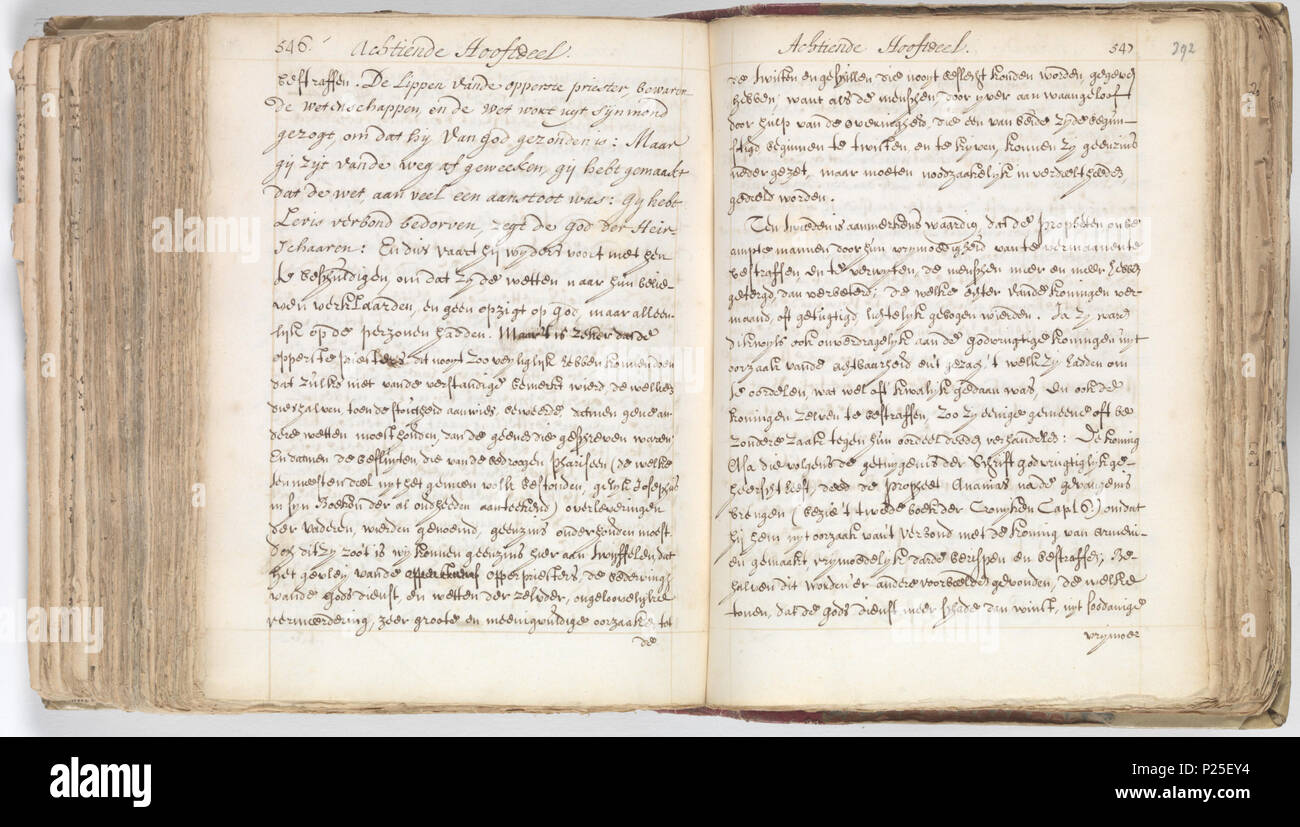 546. Achtiende Hooftdeel.
bestraffen. De Lippen vande opperste priester, bewaren
de wetenschappen, en de wet wort uyt sijn mond
gezogt, om dat hij van god gezonden is: Maar
gij zijt vande weg af geweeken, gij hebt gemaakt
dat de wet, aan veel een aanstoot was: gij hebt
Levis verbond bedorven, zegt de god der Heir-
schaaren: En dus vaart hij wijders voort met hen
te beschuldigen, om dat zy de wetten naar hun belie-
ven verklaarden, en geen opzigt op god, maar alleen-
lijk op de perzonen hadden. Maar 't is zeker dat de
opperste priesters dit nooyt zoo veyliglijk hebben konnen doen
dat zulks niet vande verstandige bemerkt wierd, de welke
dieshalven toen de stoutheid aanwies, beweerde datmen geene an-
dere wetten moest houden, dan de geene die geschreven waren:
En datmen de besluyten, die vande bedroogen Phariseen (de welke
ten meesten deel uyt het gemeen volk bestonden, gelijk Josephus
in syn Boeken der al oudheeden aanteekend) overleveringen
der vaderen, wierden genoemd, geenzins onderhouden moest.
Doch dit zy zoo 't is wy konnen geenzins hier aan twyffelen, dat
het gevley vande opperpriesters, de bederving
vande gods dienst, en wetten der zelvder, ongeloovelyke
vermeerdering, zeer groote en meenigvuldige oorzaake tot
de
Achtiende Hooftdeel. 547
392
de twisten en geschillen die nooyt beslegt konden worden, gegeven
hebben; want als de menschen, door yver aan waangeloof
door hulp van de overrigheid, die een van beide zyde begun-
stigd beginnen te twisten, en te kijven, konnen zy geenzins
neder gezet, maar moeten noodzaakelyk in verdeeltheeden
gedeeld worden.
Ten tweeden is aanmerkens waardig, dat de Propheten onbe-
ampte mannen door hun vrymoedigheid van te vermaanen te
bestraffen en te verwyten, de menschen meer en meer hebben
getergd, dan verbeterd; de welke echter vande koningen ver-
maand, oft getugtigd lichtelyk gebogen wierden. Ja zy waren
dikwyls ook onverdragelyk aan de godvrugtige koningen uyt
oorzaak vande achtbaarheid en 't gezag, 't welk zy hadden om
te oordeelen, wat wel oft kwalyk gedaan was, en ook de
koningen zelven te bestraffen, zoo zy eenige gemeene oft be-
zondere zaak tegen hun oordeel deeden verhandelen: De koning
Asa die volgens de getuygenis der Schrift godvrugtiglyk ge-
heerscht heeft, deed de Propheet Ananias na de gevangenis
brengen (bezie 't tweede boek der Cronyken Capl 6) omdat
hy hem uyt oorzaak van 't verbond met de koning van armeni-
en gemaakt vrymoedelyk darde berispen en bestraffen; Be-
halven dit worden 'er andere voorbeelden gevonden, de welke
toonen, dat de gods dienst meer schade dan winst, uyt soodanige
vrymoe
alamy
Image ID: P25EY4
www.alamy.com